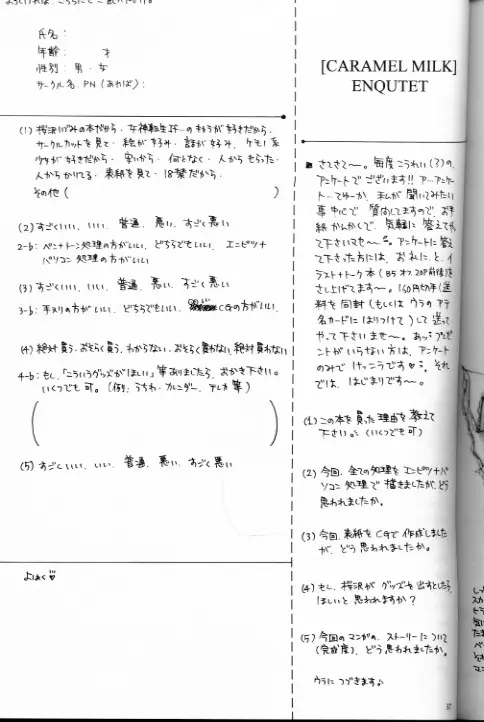 よろしければ、こちらにもご記入下さい。
氏名:
年齢: 才
性別: 男・女
サークル名・PN(あれば):
(1) 桜沢いづみの本だから・女神転生if…のキョウジが好きだから・
サークルカットを見て・絵が好み・話が好み・ケモノ系
少女が好きだから・安いから・何となく・人からもらった・
人からかりてる・表紙を見て・18禁だから・
その他( )
(2) すごくいい、いい、普通、悪い、すごく悪い
2-b: ペン+トーン処理の方がいい、どちらでもいい、エンピツ+
パソコン処理の方がいい
(3) すごくいい、いい、普通、悪い、すごく悪い
3-b: 手ヌリの方がいい、どちらでもいい、CGの方がいい、
(4) 絶対買う、おそらく買う、わからない、おそらく買わない、絶対買わない
4-b: もし、「こういうグッズがほしい」等ありましたら、おかき下さい。
いくつでも可。(例: うちわ・カレンダー、テレカ等)
( )
(5) すごくいい、いい、普通、悪い、すごく悪い
よはく♡
[CARAMEL MILK]
ENQUTET
■ さてさて〜。毎度こうれい(?)の、
アンケートでございます!! ア…アンケー
ト…てゆーか、私が聞いてみたい
事中心で質問してますので、お手
紙かんかくで、気軽に答えてやっ
て下さいませ〜。アンケートに答え
て下さった方には、お礼にと、イ
ラスト+トーク本(B5オフ、20P前後)を
さし上げてます〜。160円切手(送
料を同封(もしくはウラのアテ
名カードにはりつけて)して送って
やって下さいませ〜。あっ、プレゼ
ントがいらない方は、アンケート
のみでけっこうです♡ それ
では、はじまりです〜。
(1) この本を買った理由を教えて
下さい。(いくつでも可)
(2) 今回、全ての処理をエンピツ+パ
ソコン処理で描きましたが、どう
思われましたか。
(3) 今回、表紙をCGで作成しました
が、どう思われましたか。
(4) もし、桜沢がグッズを出すとしたら、
ほしいと思われますか?
(5) 今回のマンガの、ストーリーについて
(完成度)、どう思われましたか。
ウラにつづきます♪
37